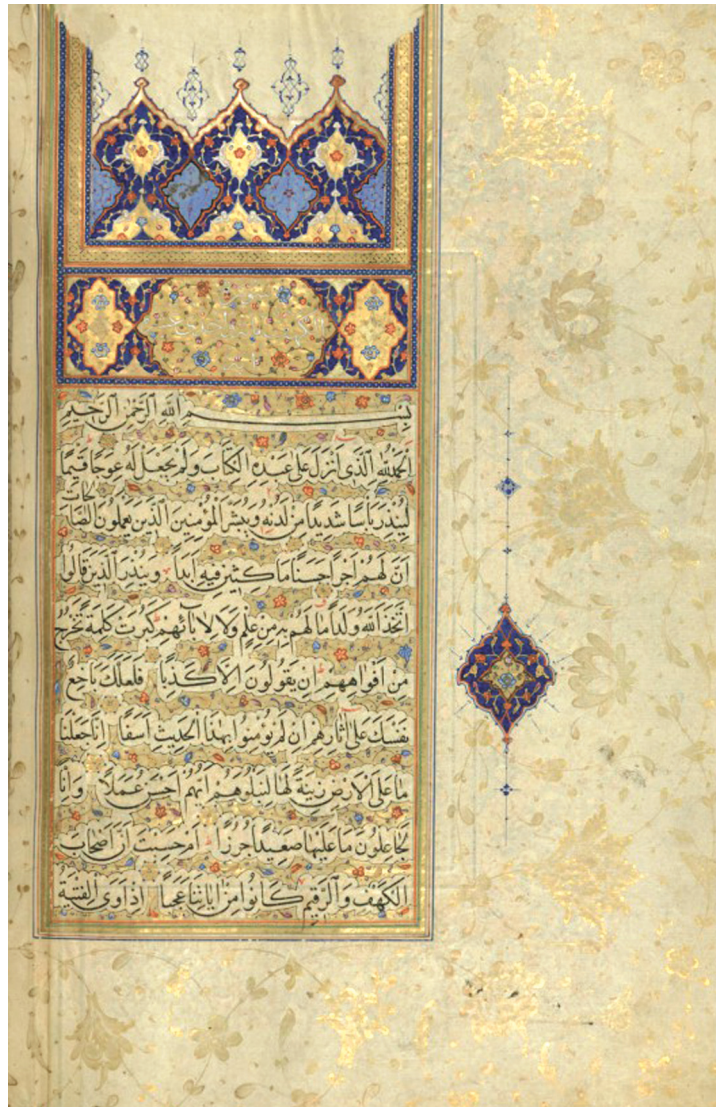 بِسْمِ اللهِ الرَّحْمٰنِ الرَّحِيمِ
اَلْحَمْدُ لِلّٰهِ الَّذِى اَنْزَلَ عَلٰى عَبْدِهِ الْكِتَابَ وَلَمْ يَجْعَلْ لَهُ عِوَجًا قَيِّمًا
لِيُنْذِرَ بَأْسًا شَدِيدًا مِنْ لَدُنْهُ وَيُبَشِّرَ الْمُؤْمِنِينَ الَّذِينَ يَعْمَلُونَ الصَّالِحَاتِ
اَنَّ لَهُمْ اَجْرًا حَسَنًا مَاكِثِينَ فِيهِ اَبَدًا وَيُنْذِرَ الَّذِينَ قَالُوا
اتَّخَذَ اللهُ وَلَدًا مَا لَهُمْ بِهِ مِنْ عِلْمٍ وَلَا لِاٰبَائِهِمْ كَبُرَتْ كَلِمَةً تَخْرُجُ
مِنْ اَفْوَاهِهِمْ اِنْ يَقُولُونَ اِلَّا كَذِبًا فَلَعَلَّكَ بَاخِعٌ
نَفْسَكَ عَلٰى اٰثَارِهِمْ اِنْ لَمْ يُؤْمِنُوا بِهٰذَا الْحَدِيثِ اَسَفًا اِنَّا جَعَلْنَا
مَا عَلَى الْاَرْضِ زِينَةً لَهَا لِنَبْلُوَهُمْ اَيُّهُمْ اَحْسَنُ عَمَلًا وَاِنَّا
لَجَاعِلُونَ مَا عَلَيْهَا صَعِيدًا جُرُزًا اَمْ حَسِبْتَ اَنَّ اَصْحَابَ
الْكَهْفِ وَالرَّقِيمِ كَانُوا مِنْ اٰيَاتِنَا عَجَبًا اِذْ اَوَى الْفِتْيَةُ